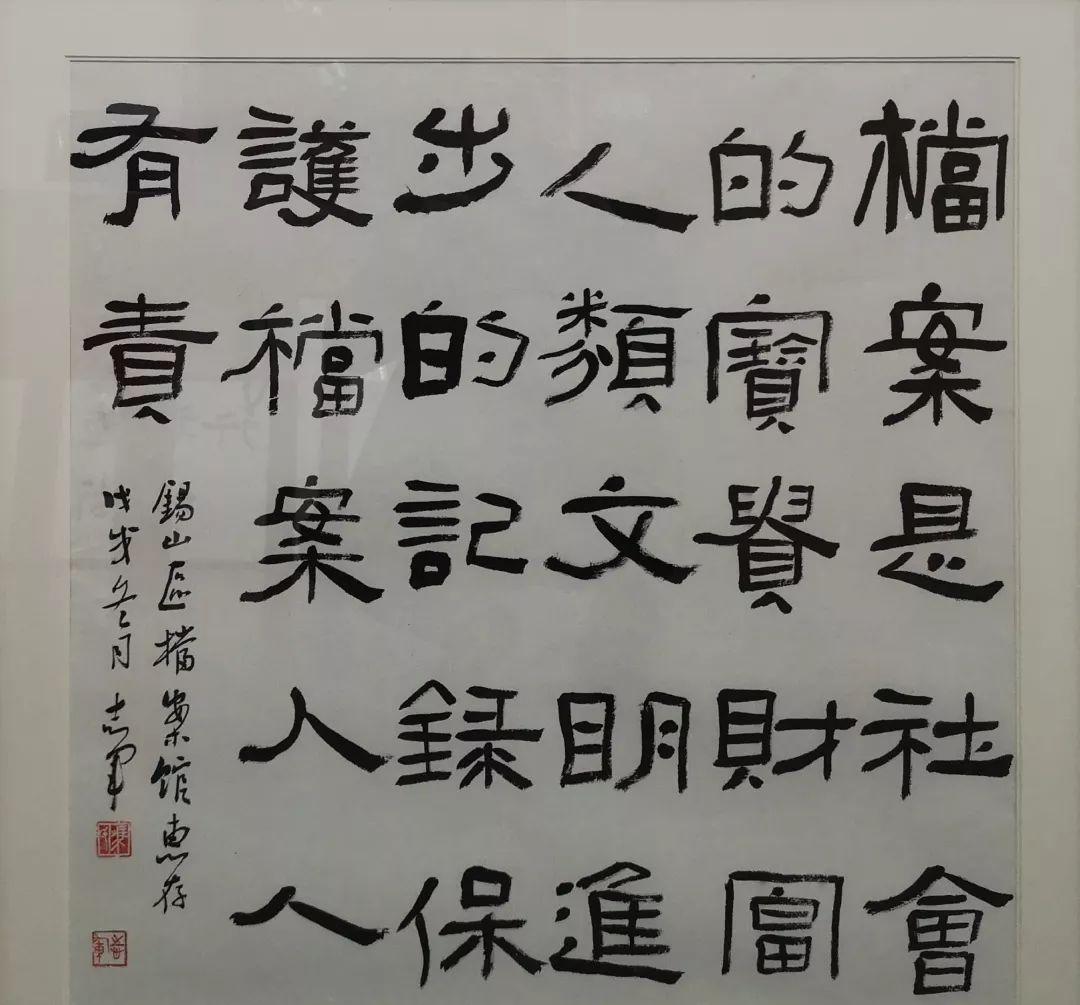 檔案是社會
的寶貴財富
人類文明進
步的記錄保
護檔案人人
有責
錫山區檔案館惠存
戊戌冬月志軍